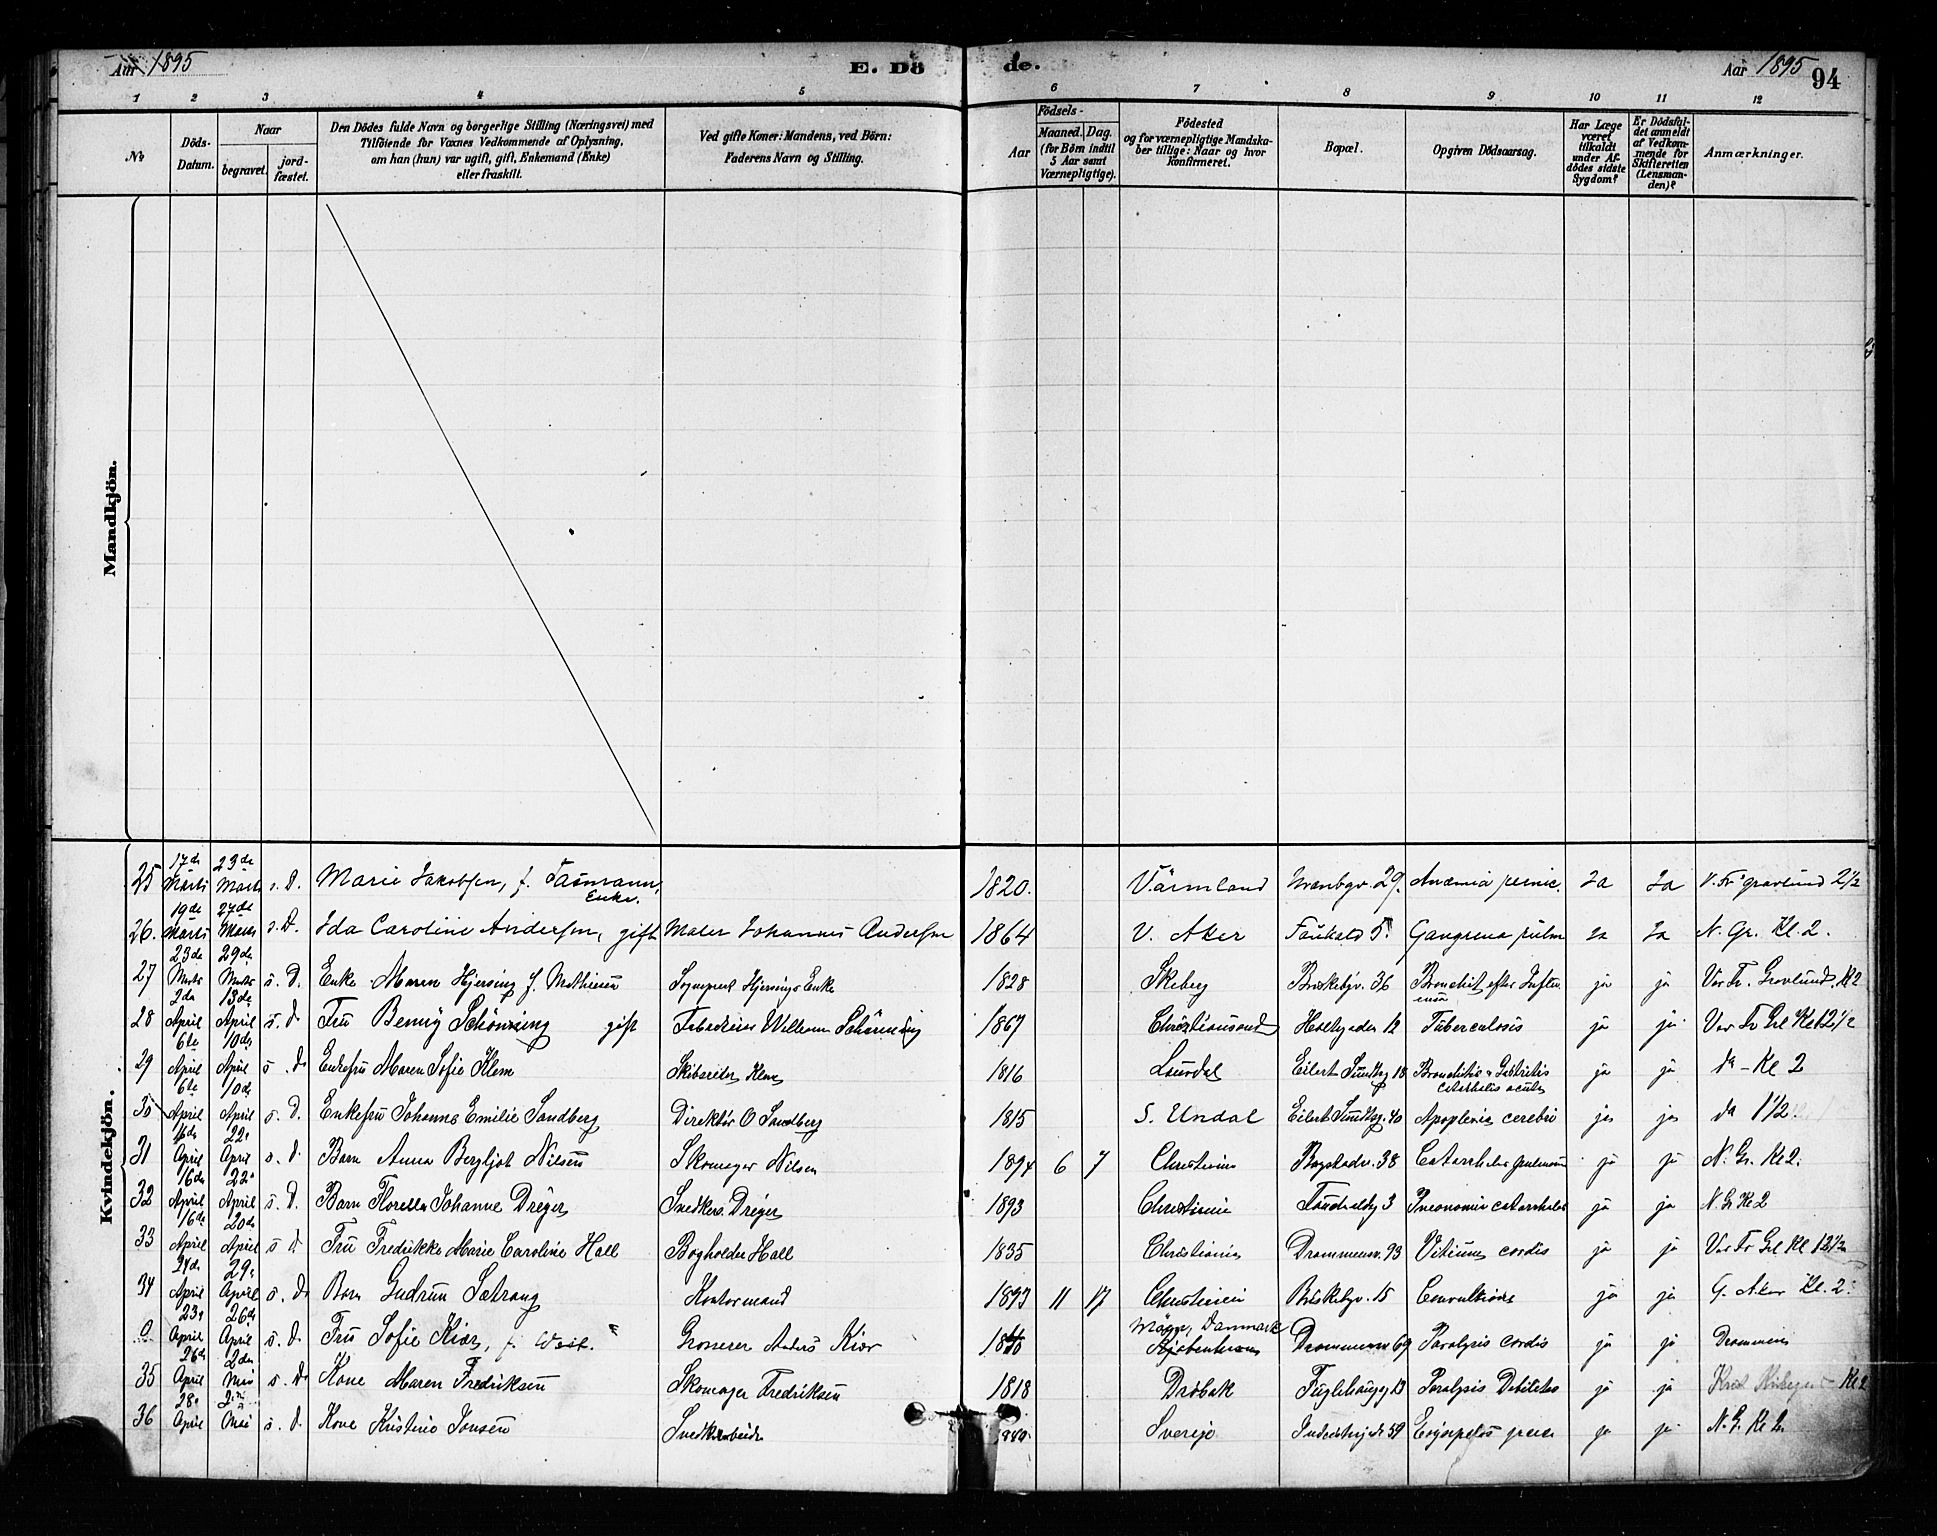 Aar 1895
E. Dö
de.
Aar 1895
94
1 2 3 4 5 6 7 8 9 10 11 12
No
Döds-Datum.
Naar
begravet.
jord-fæstet.
Den Dödes fulde Navn og borgerlige Stilling (Næringsvei) med
Tilföiende for Voxnes Vedkommende af Oplysning,
om han (hun) var ugift, gift, Enkemand (Enke)
eller fraskilt.
Ved gifte Koner: Mandens, ved Börn:
Faderens Navn og Stilling.
Födsels-
Aar
Maaned. Dag.
(for Börn indtil
5 Aar samt
Værnepligtige).
Födested
og for værnepligtige Mandska-
ber tillige: Naar og hvor
konfirmeret.
Bopæl.
Opgiven Dödsaarsag.
Har Læge
været
tilkaldt
under Af-
dödes sidste
Sygdom?
Er Dödsfal-
det anmeldt
af Vedkom-
mende for
Skifteretten
(Lensman-
den)?
Anmærkninger.
Mandkjön.
Kvindekjön.
25 17de Marts 23de Marts s. D. Marie Jakobsen, f. Tasmann, Enke. 1820. Värmland 29. Anæmia pernic. Ja Ja V. Fr. gravlund 2 1/2
26. 19de Marts 27de Marts s. D. Ida Caroline Andersen, gift Maler Johannes Andersen 1864 V. Aker 5. Gangrena pulm Ja Ja N. Gr. Kl. 2.
27 23de Marts 29de Marts s. D. Enke Maren Hjersing f. Mathiesen Hjersings Enke 1828 Skeberg Briskebyv. 36 Bronchit efter Influenza ja ja Vor Fr. Gravlund Kl 2
28 2den April 13de April s. D Fru Benny Schönning gift Willum Schönning 1867 Christiansand 12 Tuberculosis ja ja Vor Fr Grl Kl 12 1/2
29 6te April 10de April s. D. Enkefru Maren Sofie Klem Skibsreder Klem 1816 Laurdal Eilert Sundtsg 18 Bronchitis & Gastritis catarrhalis acuta ja ja do - Kl 2
30 6te April 10de April s. D. Enkefru Johanne Emilie Sandberg Direktör O Sandberg 1815 S. Undal Eilert Sundtsg. 40 Apoplexia cerebri ja ja do 1 1/2
31 16de April 22. April s. D. Barn Anna Bergljot Nilsen Skomager Nilsen 1894 6 7 Christiania Bogstadv. 38 ja ja N. Gr. Kl 2.
32 16de April 22. April s. D. Barn Florella Johanne Dreger Snedker Dreger 1893 Christiania 3 Pneumonia catarrhalis ja ja N. G Kl 2
33 16de April 20de April s. D Fru Fredrikke Marie Caroline Hall Bogholder Hall 1835 Christiania Drammensv. 93 Vitium cordis ja ja Vor Fr Grl Kl 12 1/2
34 24de April 29. April s. D. Barn Gudrun Sætrang Kontormand 1893 11 17 Christiania Briskebyv. 15 Convultions ja ja Kl. 2.
0 23. April 26de April s. D. Fru Sofie Kiær, f. West. Grosserer Anders Kiær Danmark Kjøbenhavn Drammensv 69 Paralysis cordis ja ja Drammen
35 26de April 2den Mai s. D. Kone Maren Fredriksen Skomager Fredriksen 1818 Dröbak 13 Paralysis Debilitas ja ja Kl 2
36 28. April 2. Mai s. D. Kone Kristine Jonsen Snedkerarbeider Sverige 59 ja ja N. G. Kl 2